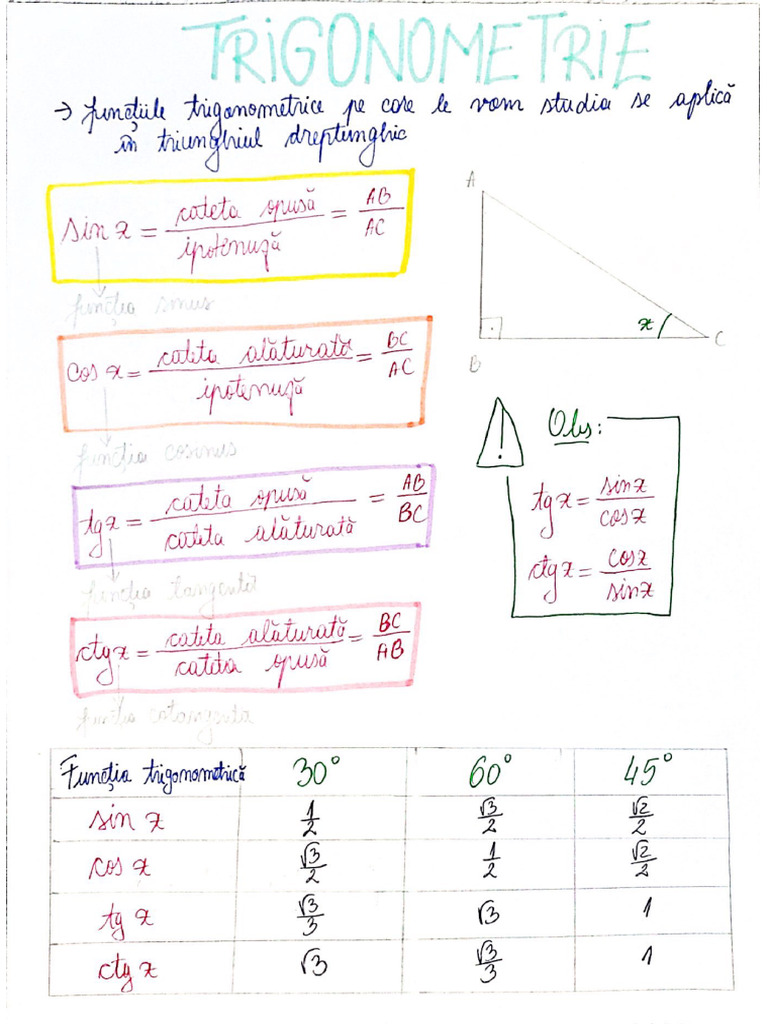 TRIGONOMETRIE
→ funcțiile trigonometrice pe care le vom studia se aplică
în triunghiul dreptunghic
sin x = cateta opusă / ipotenuză = AB / AC
funcția sinus
cos x = cateta alăturată / ipotenuză = BC / AC
funcția cosinus
tg x = cateta opusă / cateta alăturată = AB / BC
funcția tangentă
ctg x = cateta alăturată / cateta opusă = BC / AB
funcția cotangenta
A
x
C
B
!
Obs:
tg x = sin x / cos x
ctg x = cos x / sin x
Funcția trigonometrică 30° 60° 45°
sin x 1/2 √3/2 √2/2
cos x √3/2 1/2 √2/2
tg x √3/3 √3 1
ctg x √3 √3/3 1